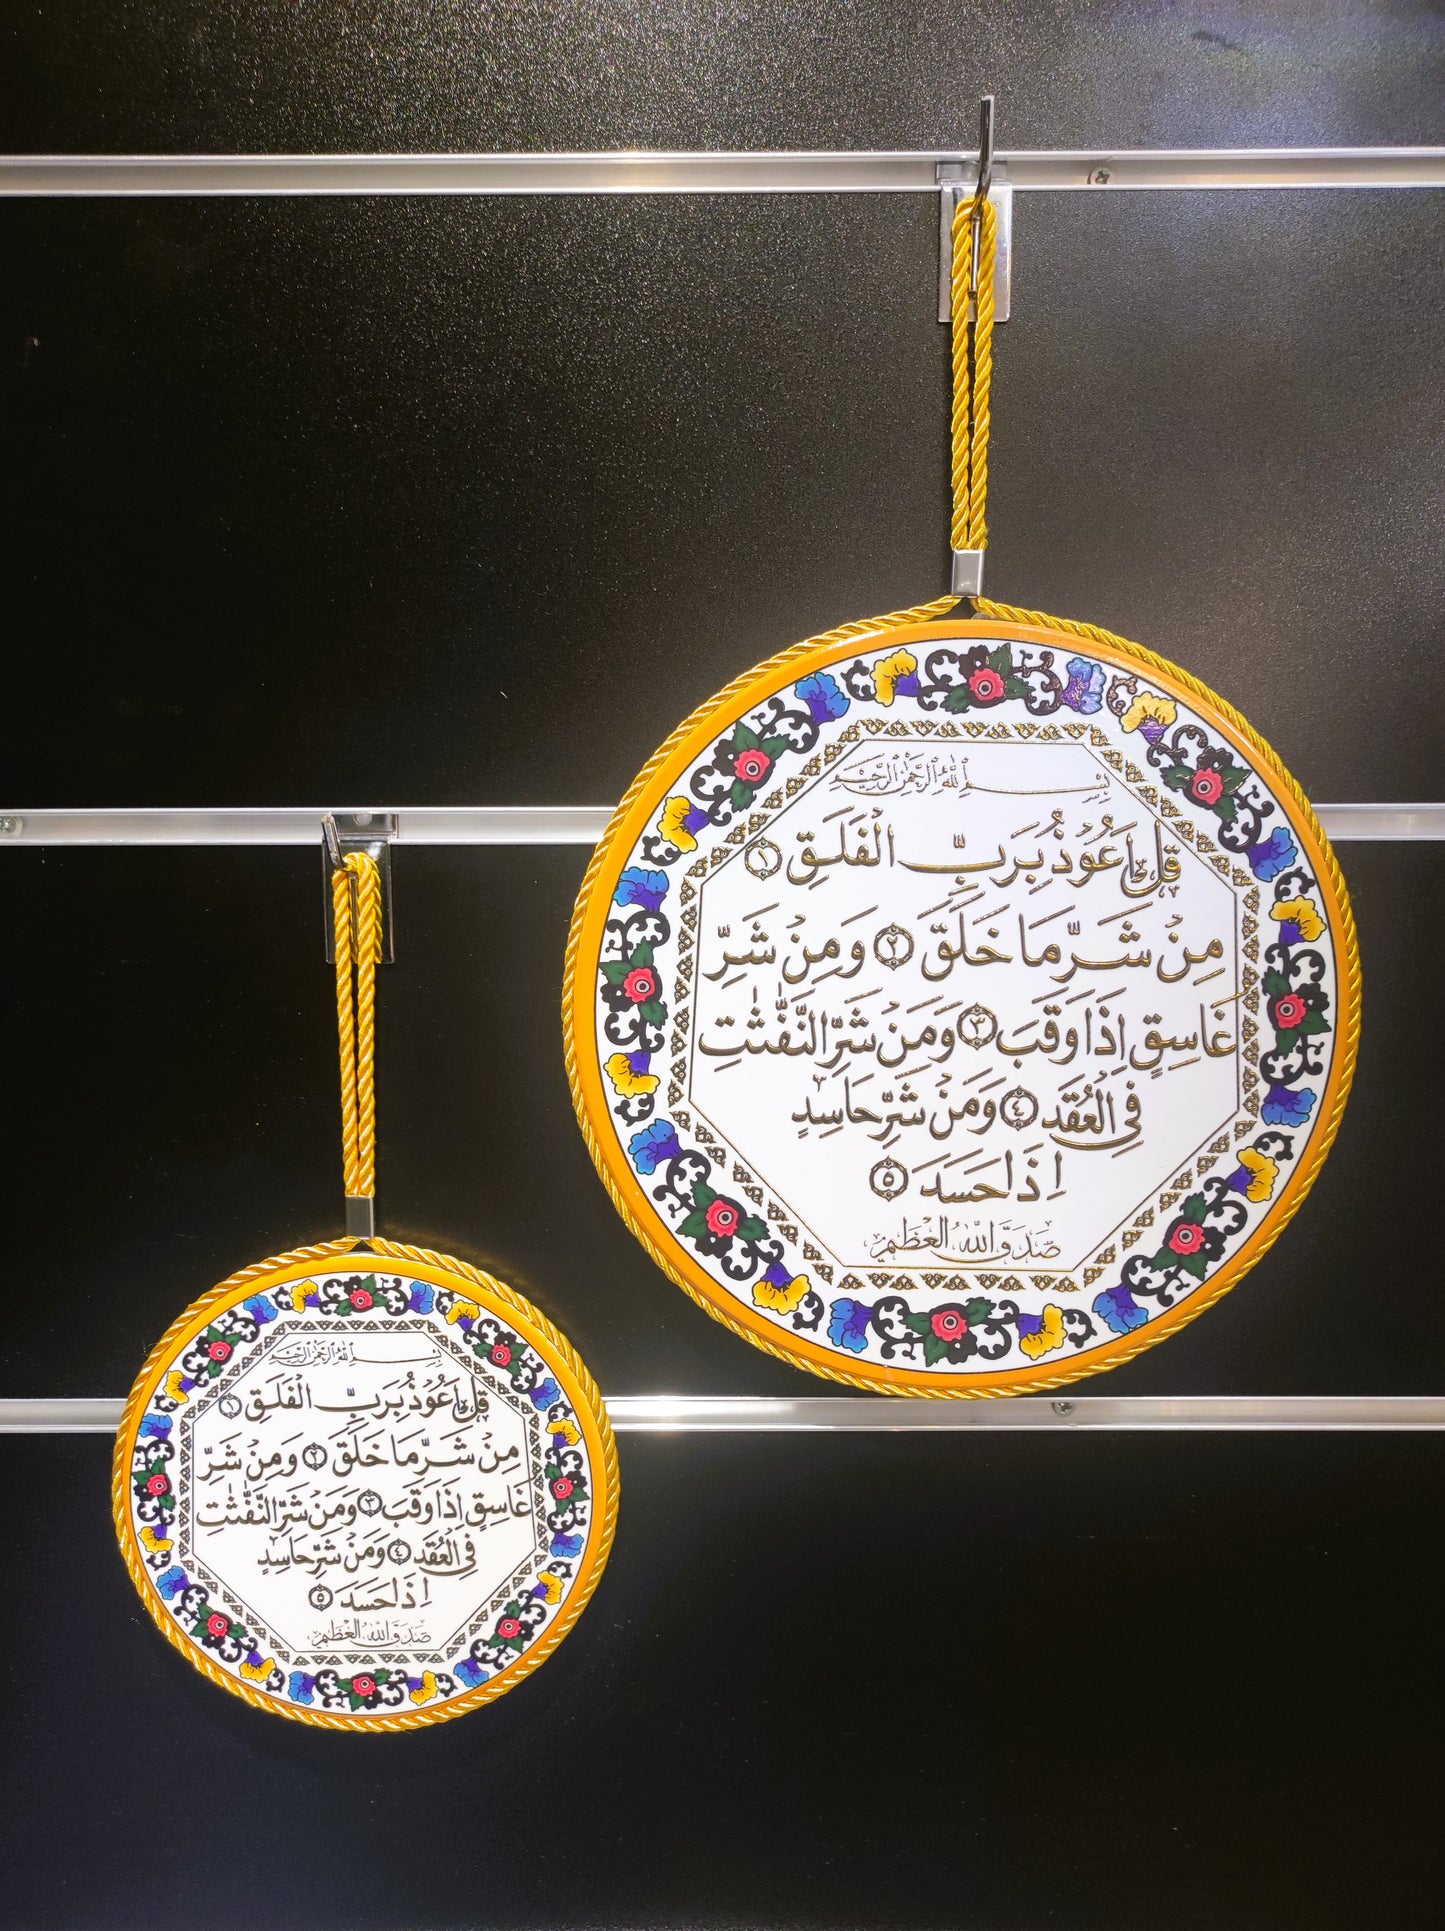 بِسْمِ اللّٰهِ الرَّحْمٰنِ الرَّحِيْمِ
قُلْ اَعُوْذُ بِرَبِّ الْفَلَقِ ۝١
مِنْ شَرِّ مَا خَلَقَ ۝٢ وَمِنْ شَرِّ
غَاسِقٍ اِذَا وَقَبَ ۝٣ وَمَنْ شَرِّ النَّفّٰثٰتِ
فِى الْعُقَدِ ۝٤ وَمَنْ شَرِّ حَاسِدٍ
اِذَا حَسَدَ ۝٥
صَدَقَ اللّٰهُ الْعَظِيْمُ
بِسْمِ اللّٰهِ الرَّحْمٰنِ الرَّحِيْمِ
قُلْ اَعُوْذُ بِرَبِّ الْفَلَقِ ۝١
مِنْ شَرِّ مَا خَلَقَ ۝٢ وَمِنْ شَرِّ
غَاسِقٍ اِذَا وَقَبَ ۝٣ وَمَنْ شَرِّ النَّفّٰثٰتِ
فِى الْعُقَدِ ۝٤ وَمَنْ شَرِّ حَاسِدٍ
اِذَا حَسَدَ ۝٥
صَدَقَ اللّٰهُ الْعَظِيْمُ